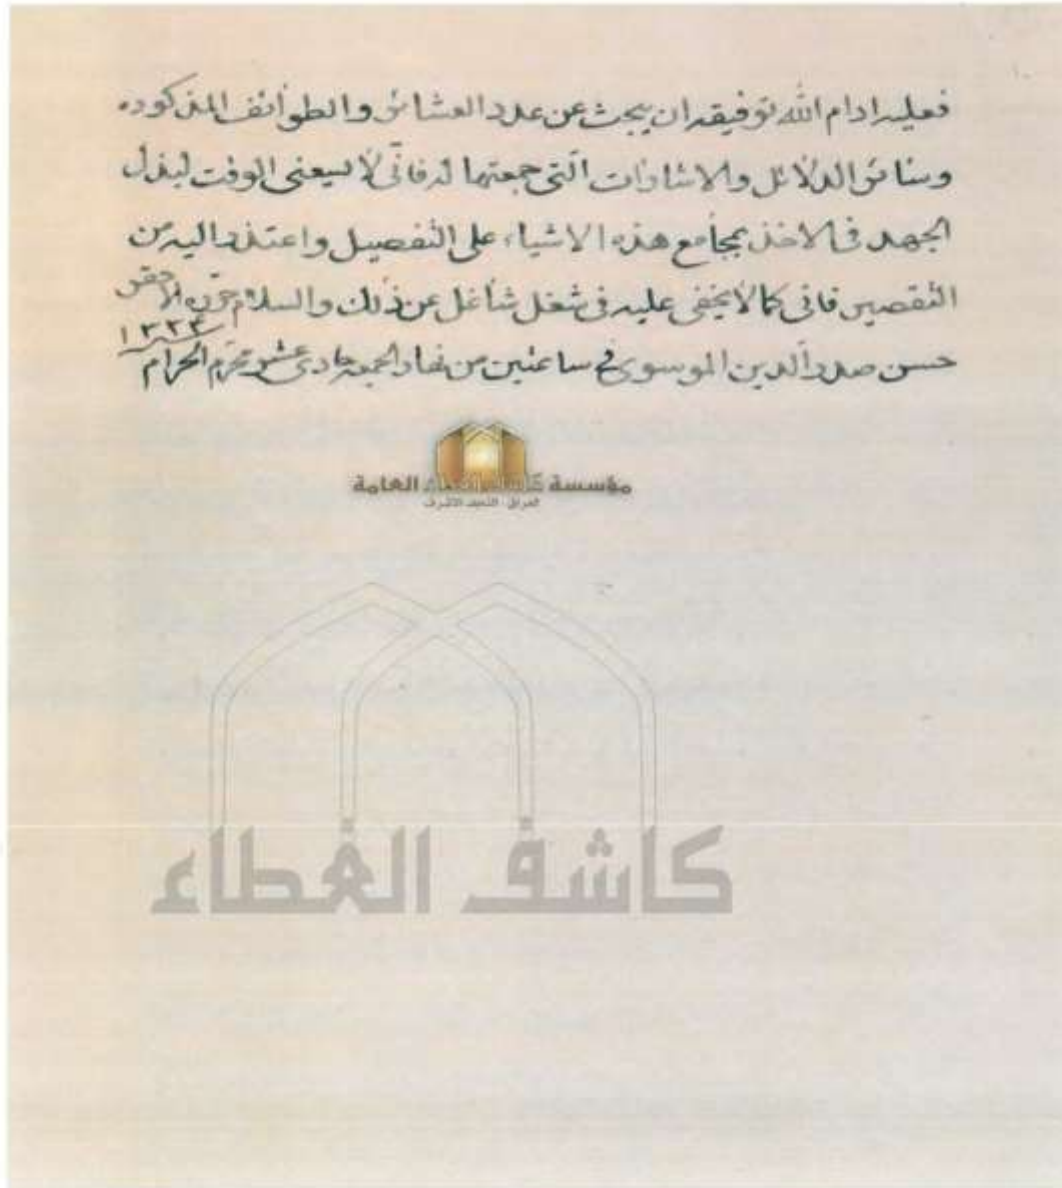 فعليه ادام الله توفيقه ان يبحث عن عدد العشائر والطوائف المذكوره
وسائر الدلائل والاشارات الّتي جمعتها له فانّي لا يسعني الوقت لبذل
الجهد في الاخذ بمجامع هذه الاشياء على التفصيل واعتذر اليه من
التقصير فاني كما لا يخفى عليه في شغل شاغل عن ذلك والسلام حرّره الاحقر
حسن صدر الدين الموسوي في ساعتين من نهار الجمعه حادي عشر محرّم الحرام
مؤسسة كاشف الغطاء العامة
العراق - النجف الأشرف
كاشف الغطاء